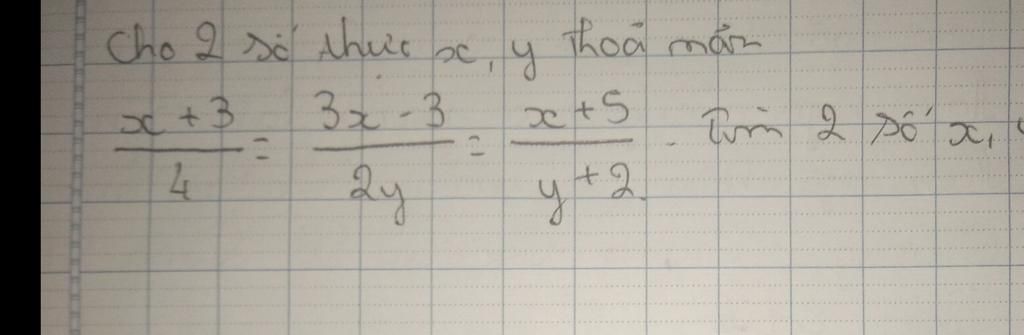 Cho 2 số thực x, y thoả mãn
x + 3 / 4 = 3x - 3 / 2y = x + 5 / y + 2 . Tìm 2 số x,